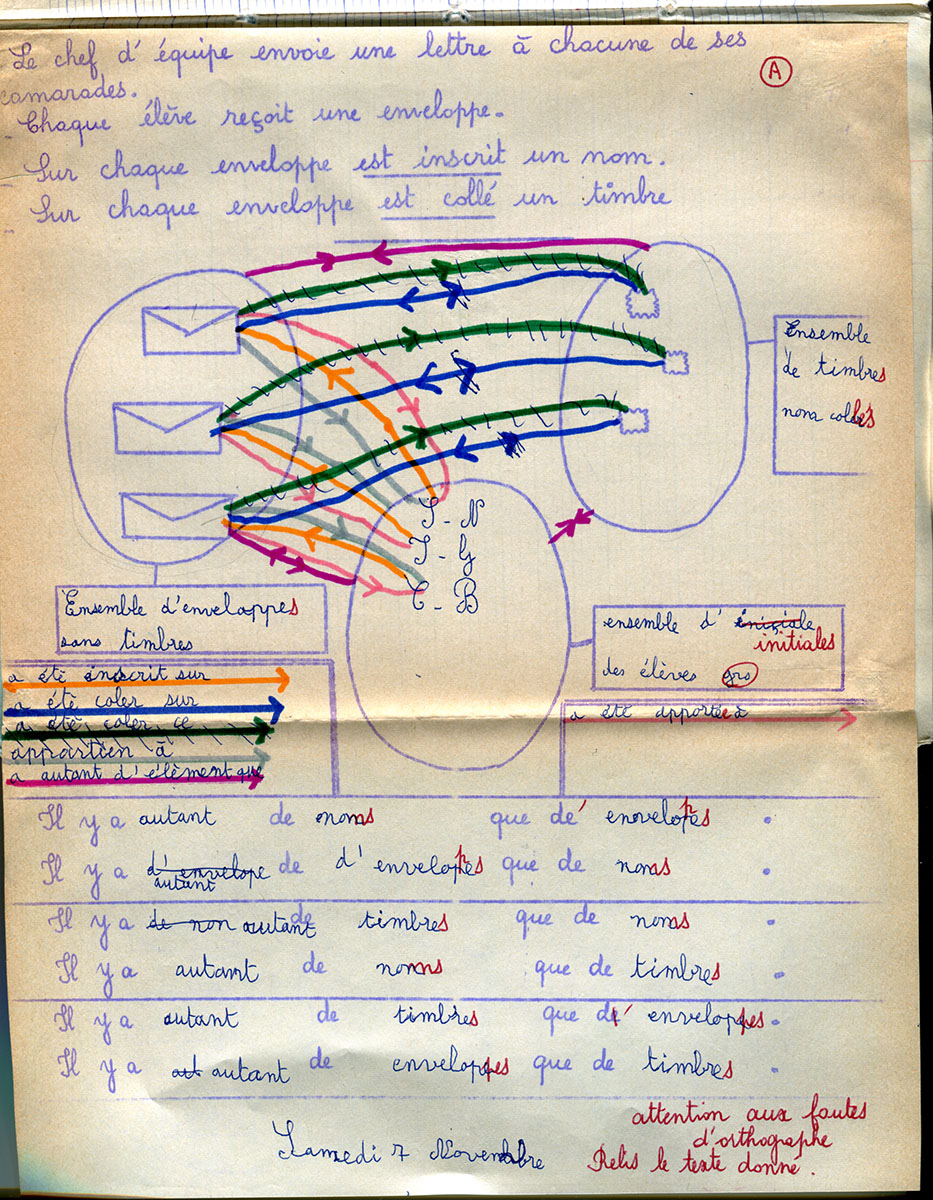 Le chef d'équipe envoie une lettre à chacune de ses
camarades.
A
- Chaque élève reçoit une enveloppe.
- Sur chaque enveloppe est inscrit un nom.
- Sur chaque enveloppe est collé un timbre
Ensemble
de timbres
non collés
J-N
J-G
C-B
Ensemble d'enveloppes
sans timbres
ensemble d' iniçiale
initiales
des élèves gro
a été inscrit sur
a été coler sur
a été coler ce
appartien à
a autant d'élément que
a été apportée à
Il y a autant de noms que de' enovelopes.
Il y a d'envelope autant de d'envelopes que de noms.
Il y a de non autant de timbres que de noms.
Il y a autant de noms que de timbres.
Il y a autant de timbres que d' enveloppes.
Il y a aut autant de enveloppes que de timbres.
attention aux fautes
d'orthographe
Samedi 7 Novembre
Relis le texte donné.